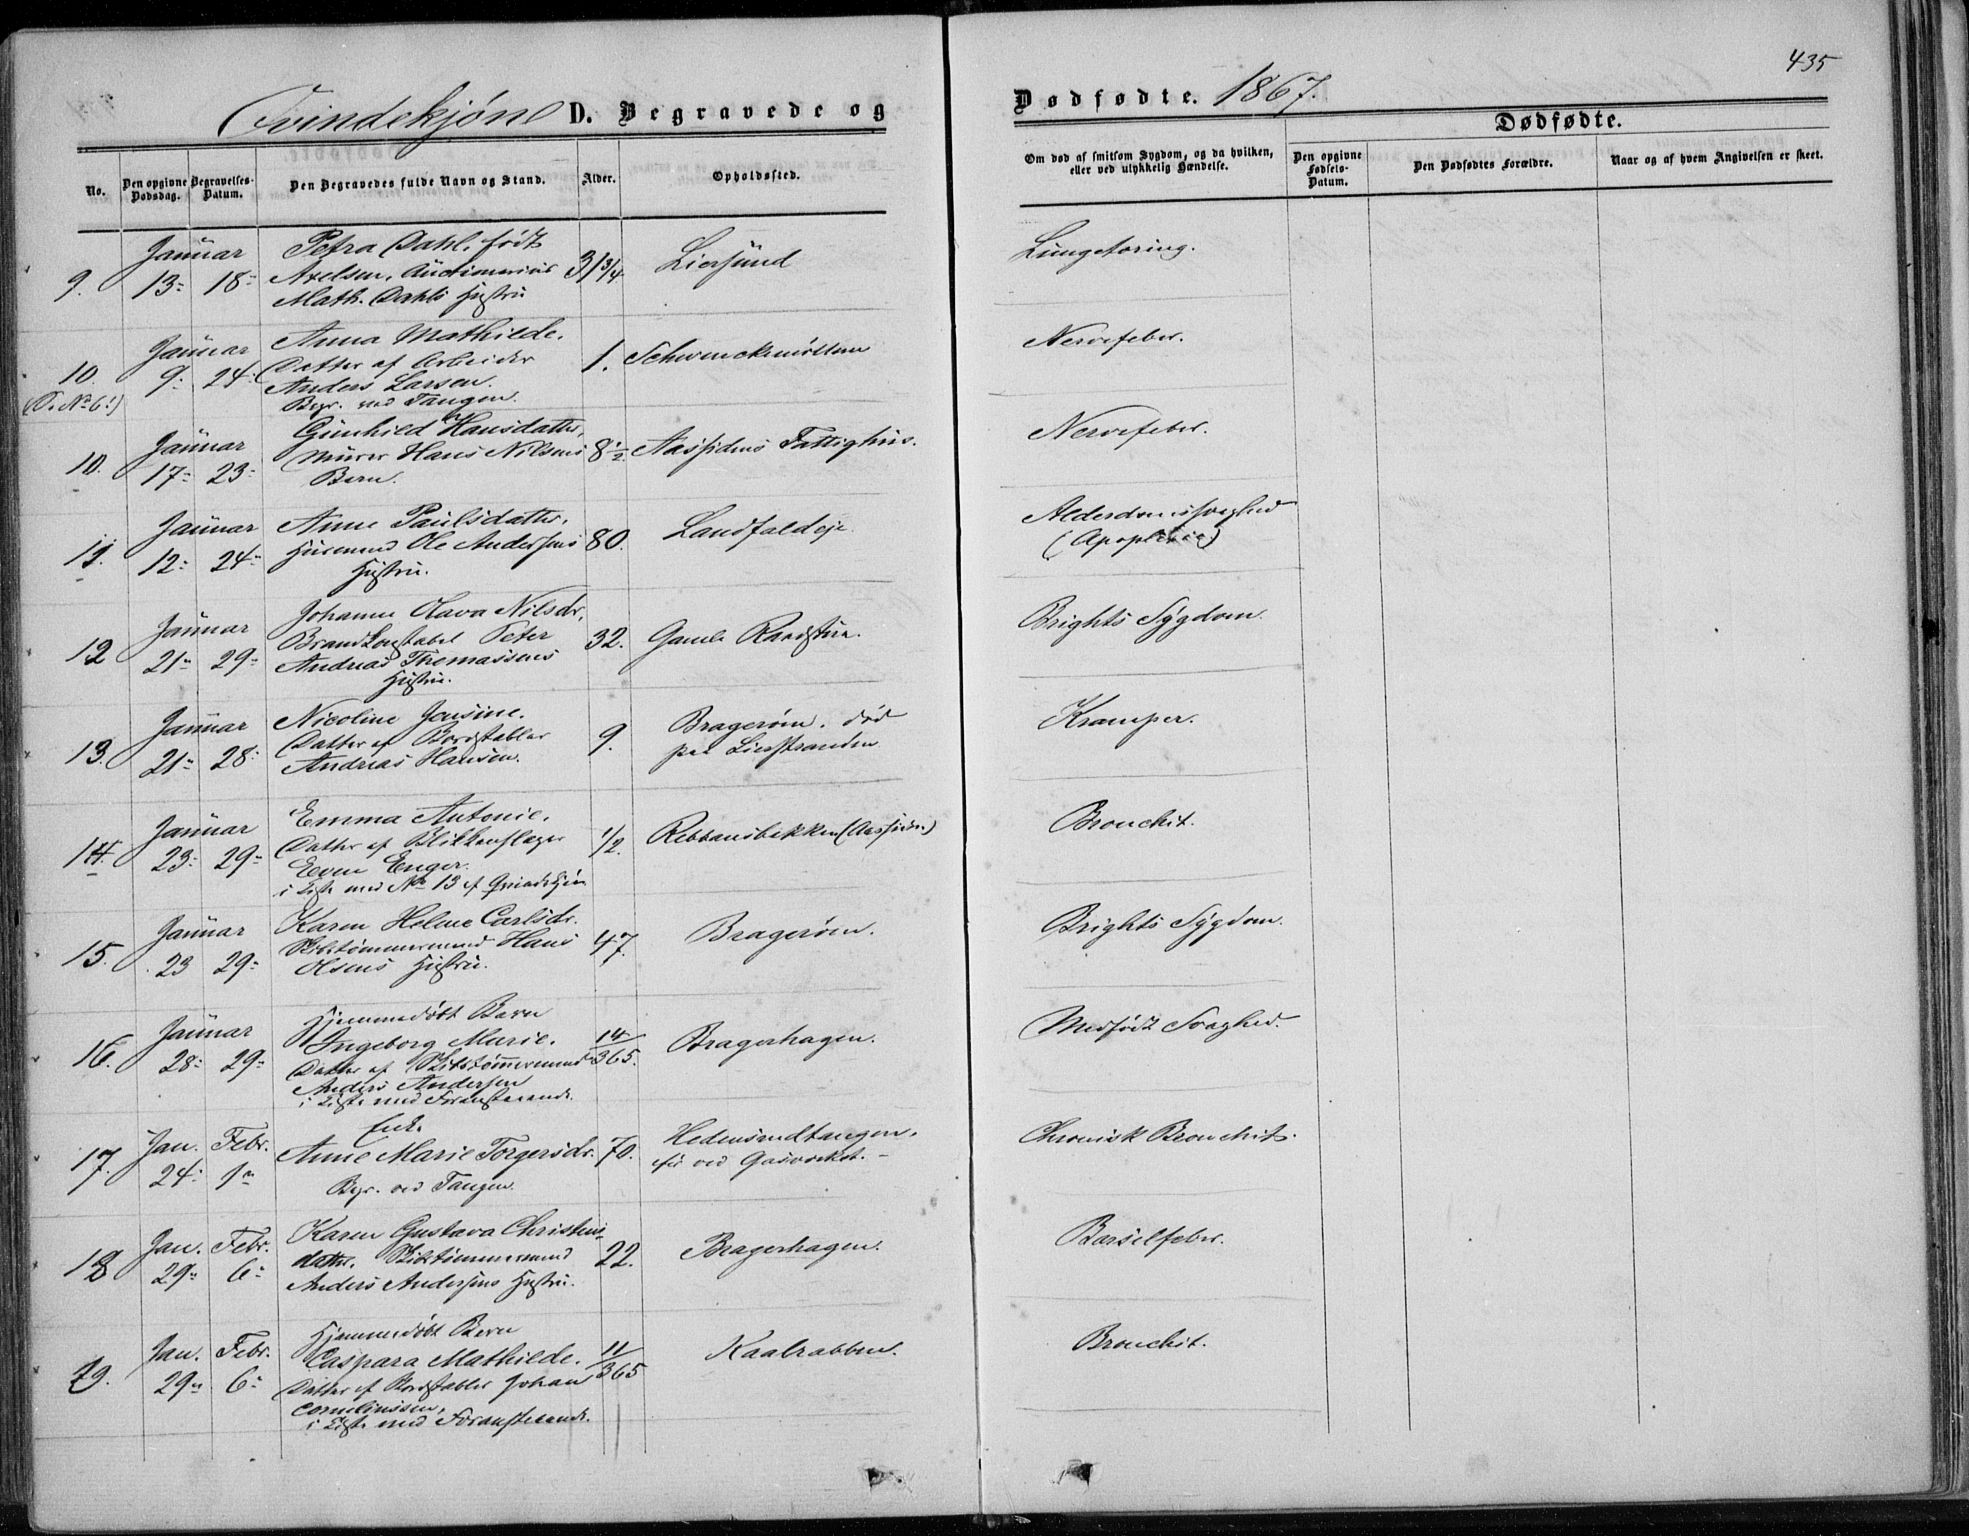 435
Qvindekjøn D. Begravede og Dødfødte. 1867.
Dødfødte.
No.
Den opgivne Dødsdag.
Begravelses-Datum.
Den Begravedes fulde Navn og Stand.
Alder.
Opholdssted.
Om død af smitsom Sygdom, og da hvilken,
eller ved ulykkelig Hændelse.
Den opgivne
Fødsels-
Datum.
Den Dødfødtes Forældre.
Naar og af hvem Angivelsen er skeet.
9. Januar 13= 18=
Petra Dahl, født
Axelsen,
Math. Dahls Hustru
31 3/4
Liersund
Lungetæring.
10. Januar 9= 24=
Anna Mathilde,
Datter af Arbeider
Anders Larsen.
Begr. ved Tangen.
1.
Nervefeber.
10. Januar 17= 23=
Gunhild Hansdatter,
Murer Hans Nilsens
Barn.
8 1/2
Aassidens Fattighus.
Nervefeber.
11. Januar 12= 24=
Anne Paulsdatter,
Husmand Ole Andersens
Hustru.
80.
Landfaldeje
Alderdomssvaghed
(Apoplexie)
12 Januar 21= 29=
Johanne Olava Nilsdr,
Brandkonstabel Peter
Andreas Thomassens
Hustru.
32.
Gamle Raadstue.
Brights Sygdom.
13. Januar 21= 28=
Nicoline Jensine.
Datter af Bordstabler
Andreas Hansen.
9.
Bragerøen. død
paa Lierstranden
Kramper.
14. Januar 23= 29=
Emma Antonie,
Datter af Blikkenslager
Even Enger.
i Kiste med No 13 af Qvindekjøn
1/2.
Rebbansbakken (Aassiden)
Bronchit.
15. Januar 23 29=
Karen Helene Carlsdr.
Skibstømmermand Hans
Olsens Hustru.
47.
Bragerøen.
Brights Sygdom.
16. Januar 28= 29=
Hjemmedøbt Barn
Ingeborg Marie.
Datter af Skibstømmermand
Anders Andersen
i Kiste med Foranstaaende.
14/365.
Bragerhagen.
Medfødt Svaghed.
17. Jan. 24= Febr. 1=
Enke
Anne Marie Torgersdr.
Begr. ved Tangen.
70.
Hedensrudtangen,
ved Gasverket.
Chronisk Bronchit.
18 Jan. 29= Febr. 6=
Karen Gustava Christens-
datter, Skibstømmermand
Anders Andersens Hustru.
22.
Bragerhagen.
Barselfeber.
19. Jan. 29= Febr. 6=
Hjemmedøbt Barn
Caspara Mathilde.
Datter af Bordstabler Johan
Corneliussen,
i Kiste med Foranstaaende.
11/365
Kaalrabben.
Bronchit.